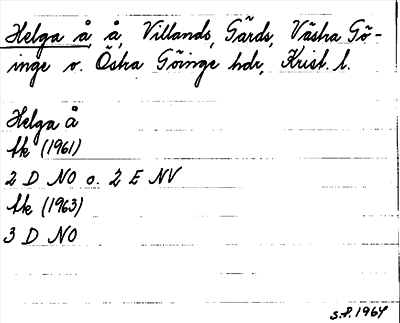 Helga å, å, Villands, Gärds, Västra Gö-
inge o. Östra Göinge hdr, Krist. l.
Helga å
fk (1961)
2 D NO o. 2 E NV
fk (1963)
3 D NO
S.F. 1964